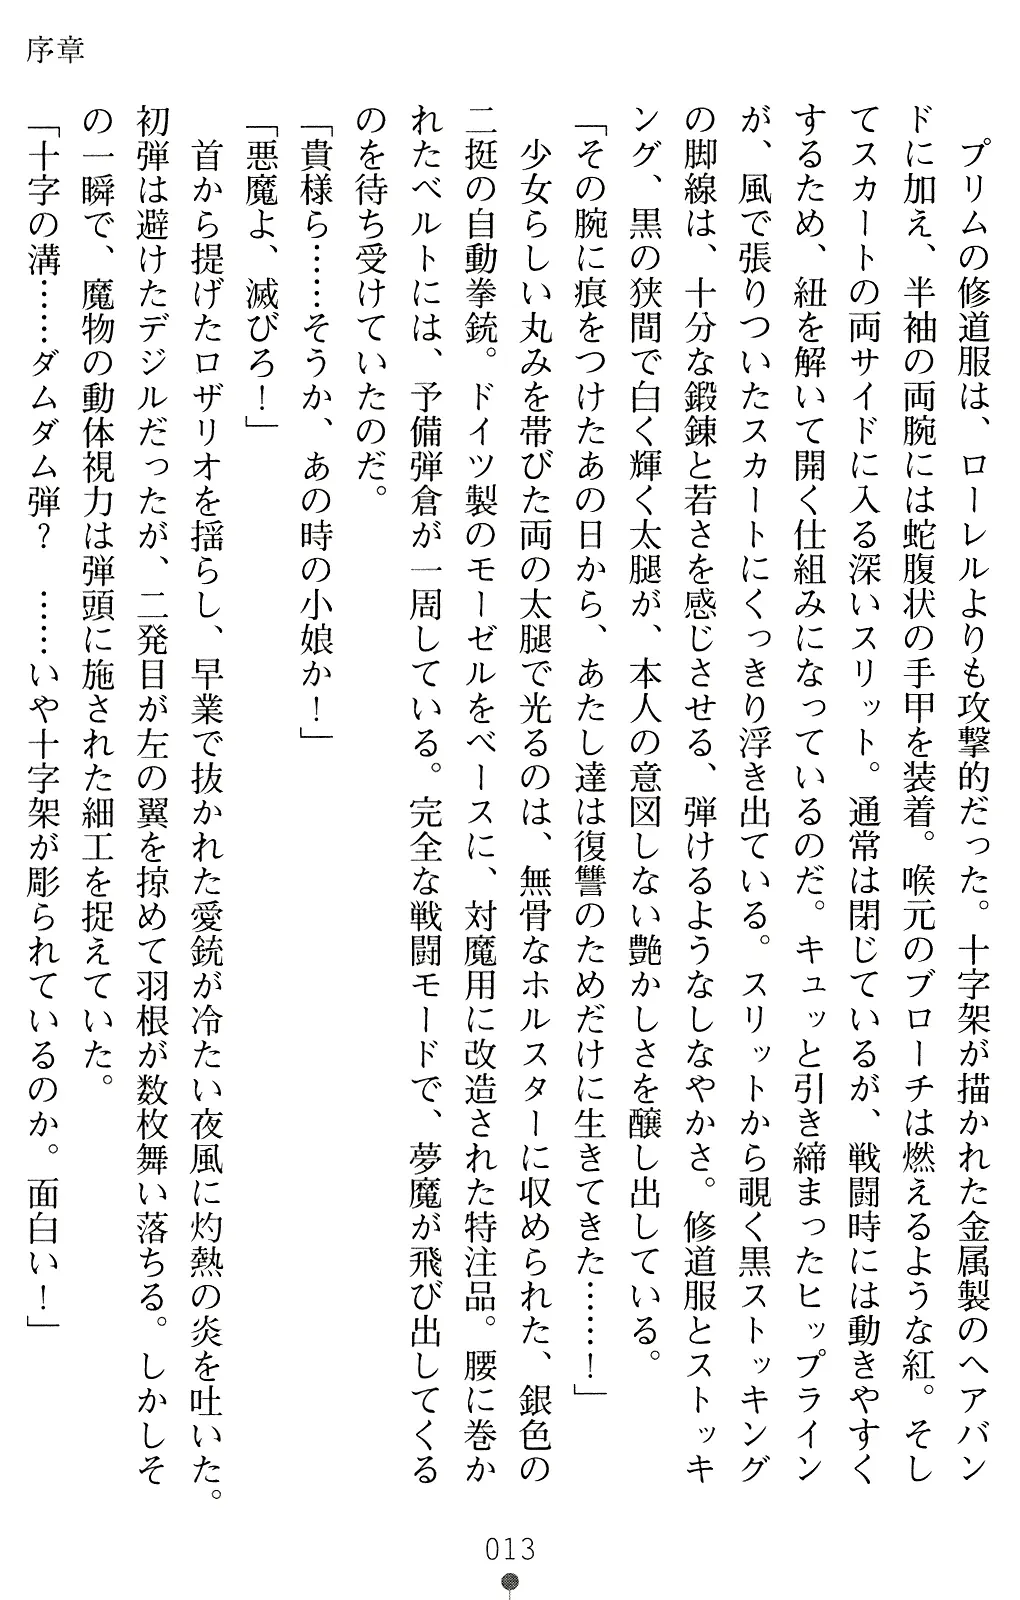 序章
　プリムの修道服は、ローレルよりも攻撃的だった。十字架が描かれた金属製のヘアバン
ドに加え、半袖の両腕には蛇腹状の手甲を装着。喉元のブローチは燃えるような紅。そし
てスカートの両サイドに入る深いスリット。通常は閉じているが、戦闘時には動きやすく
するため、紐を解いて開く仕組みになっているのだ。キュッと引き締まったヒップライン
が、風で張りついたスカートにくっきり浮き出ている。スリットから覗く黒ストッキング
の脚線は、十分な鍛錬と若さを感じさせる、弾けるようなしなやかさ。修道服とストッキ
ング、黒の狭間で白く輝く太腿が、本人の意図しない艶かしさを醸し出している。
「その腕に痕をつけたあの日から、あたし達は復讐のためだけに生きてきた……！」
　少女らしい丸みを帯びた両の太腿で光るのは、無骨なホルスターに収められた、銀色の
二挺の自動拳銃。ドイツ製のモーゼルをベースに、対魔用に改造された特注品。腰に巻か
れたベルトには、予備弾倉が一周している。完全な戦闘モードで、夢魔が飛び出してくる
のを待ち受けていたのだ。
「貴様ら……そうか、あの時の小娘か！」
「悪魔よ、滅びろ！」
　首から提げたロザリオを揺らし、早業で抜かれた愛銃が冷たい夜風に灼熱の炎を吐いた。
初弾は避けたデジルだったが、二発目が左の翼を掠めて羽根が数枚舞い落ちる。しかしそ
の一瞬で、魔物の動体視力は弾頭に施された細工を捉えていた。
「十字の溝……ダムダム弾？　……いや十字架が彫られているのか。面白い！」
013